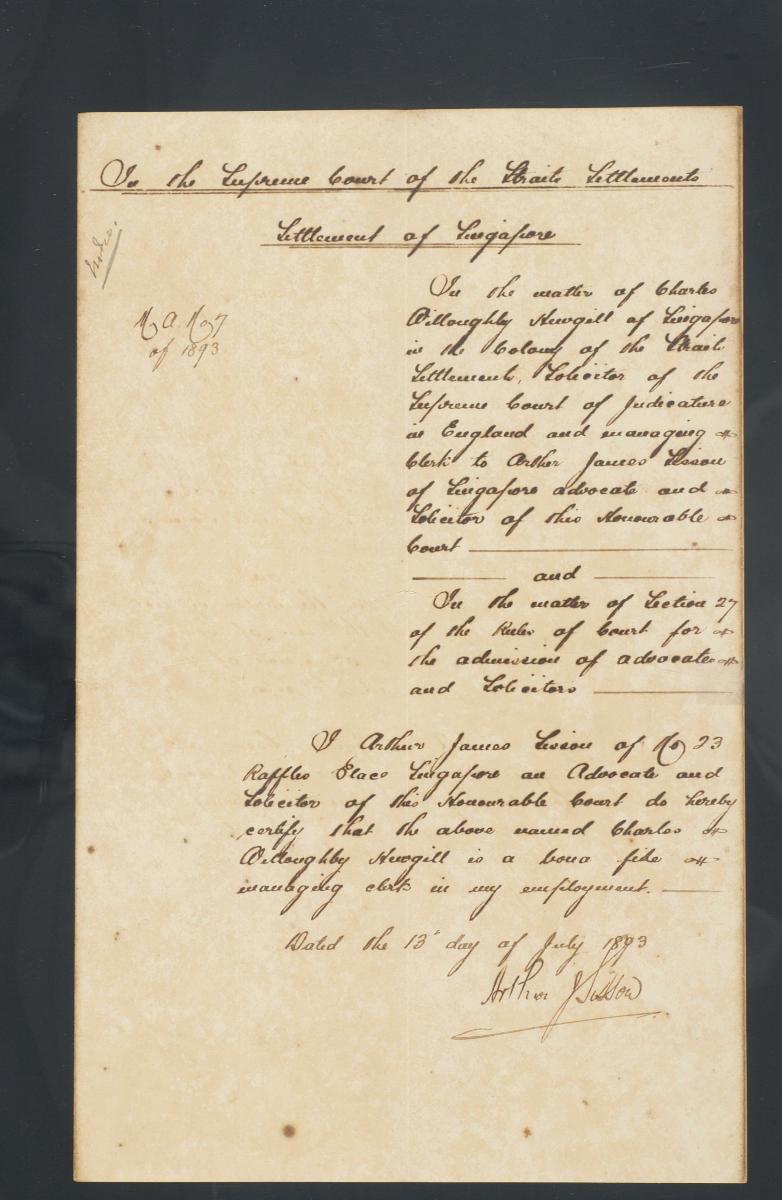 In the Supreme Court of the Straits Settlements
Settlement of Singapore
M A No 7
of 1893
In the matter of Charles
Willoughby Hewgill of Singapore
in the Colony of the Straits
Settlements, Solicitor of the
Supreme Court of Judicature
in England and managing
Clerk to Arthur James Sisson
of Singapore advocate and
Solicitor of this Honourable
Court
and
In the matter of Section 27
of the Rules of Court for
the admission of advocates
and Solicitors
I Arthur James Sisson of No 23
Raffles Place Singapore an Advocate and
Solicitor of this Honourable Court do hereby
certify that the above named Charles
Willoughby Hewgill is a bona fide
managing clerk in my employment.
Dated the 13" day of July 1893
Arthur J Sisson